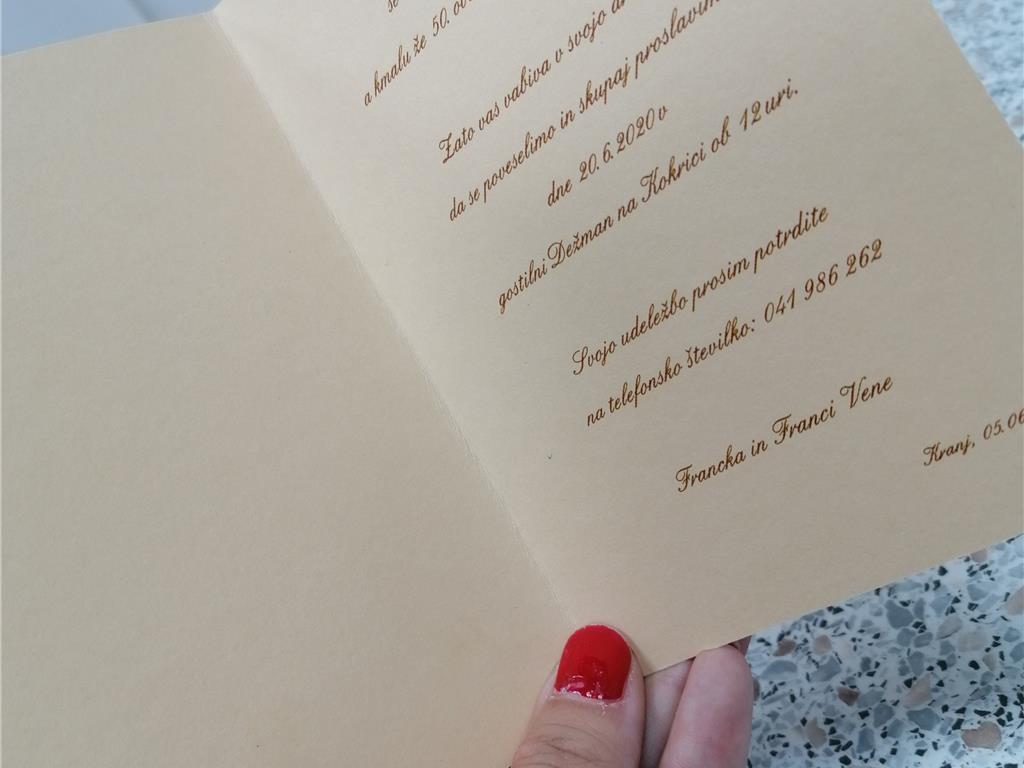 se
a kmalu že 50.
Zato vas vabiva v svojo
da se poveselimo in skupaj proslavim
dne 20.6.2020 v
gostilni Dežman na Kokrici ob 12 uri.
Svojo udeležbo prosim potrdite
na telefonsko številko: 041 986 262
Francka in Franci Vene
Kranj, 05.06